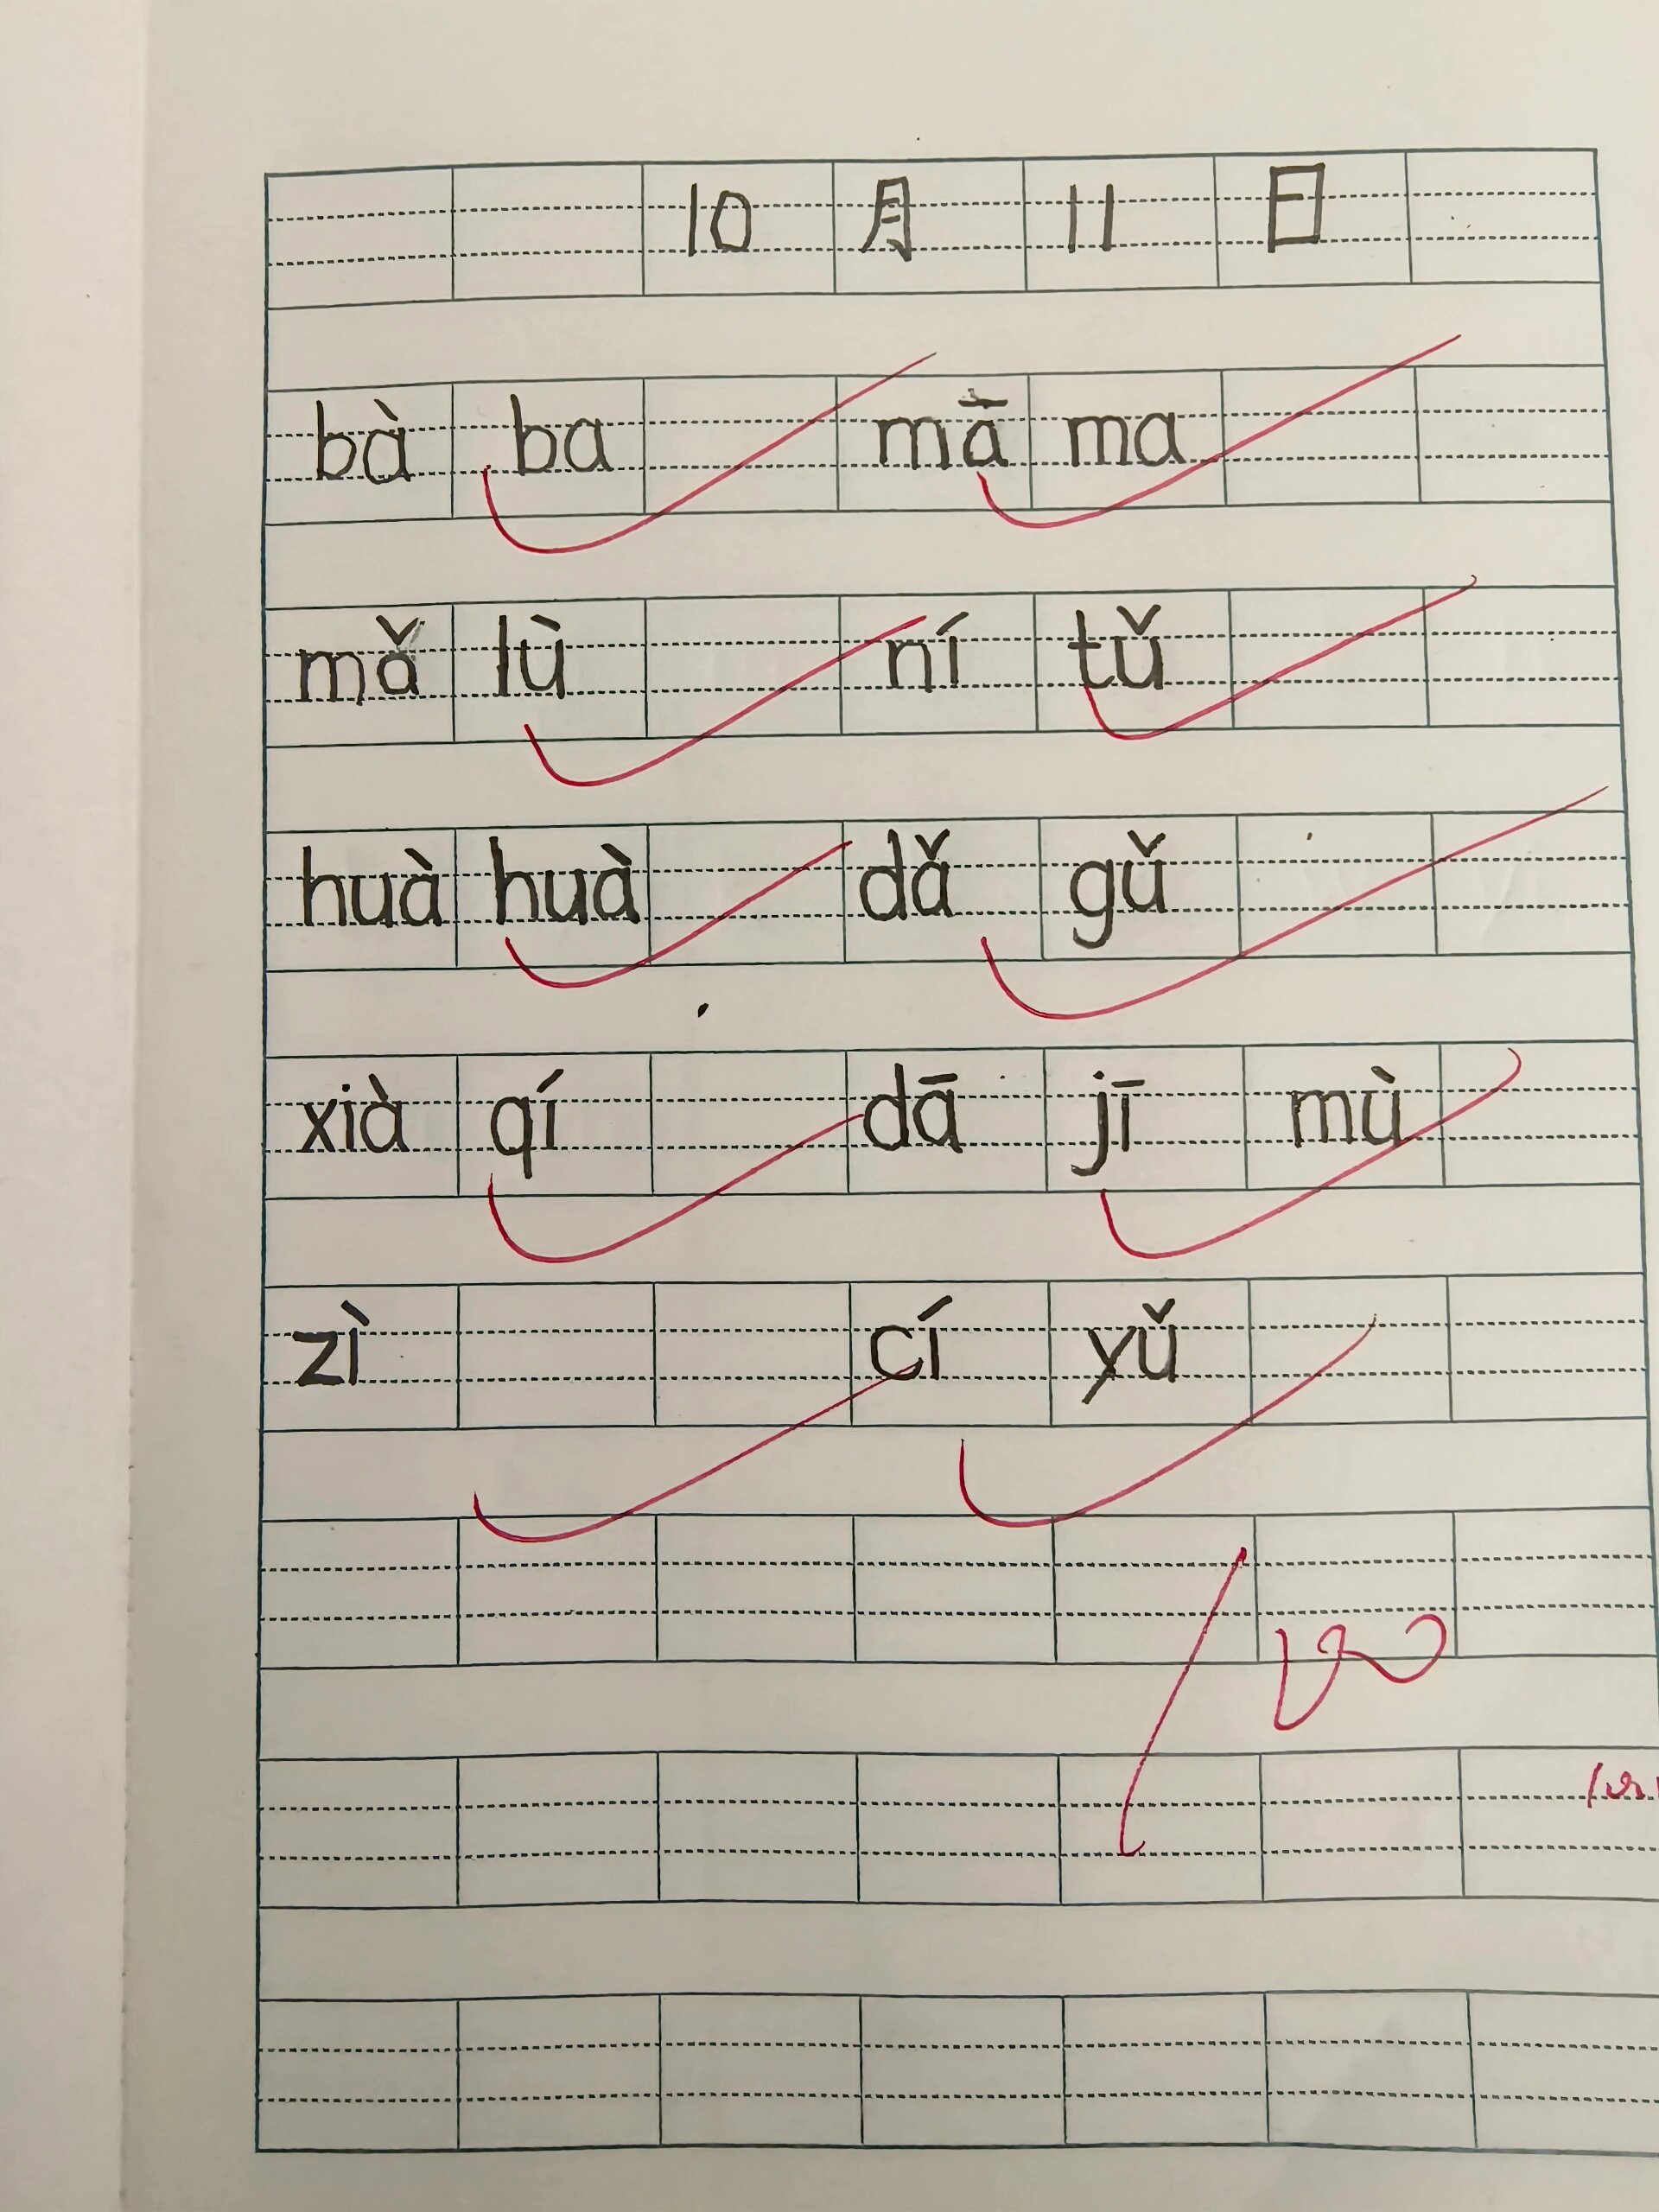 10 月 11 日
bà ba mā ma
mǎ lù ní tǔ
huà huà dǎ gǔ
xià qí dā jī mù
zì cí yǔ
100